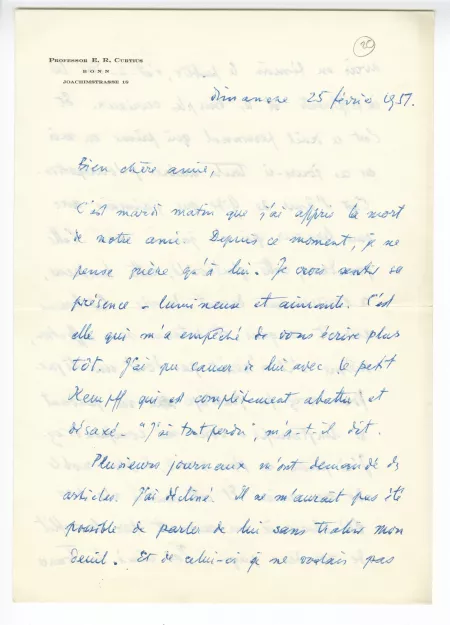 20
PROFESSOR E. R. CURTIUS
BONN
JOACHIMSTRASSE 18
Dimanche 25 février 1951.
Bien chère amie,
C'est mardi matin que j'ai appris la mort
de notre ami. Depuis ce moment, je ne
pense guère qu'à lui. Je crois sentir sa
présence - lumineuse et aimante. C'est
elle qui m'a empêché de vous écrire plus
tôt. J'ai pu causer de lui avec le petit
Kempff qui est complètement abattu et
désaxé. "J'ai tout perdu", m'a-t-il dit.
Plusieurs journaux m'ont demandé des
articles. J'ai décliné. Il ne m'aurait pas été
possible de parler de lui sans trahir mon
deuil. Et de celui-ci je ne voulais pas